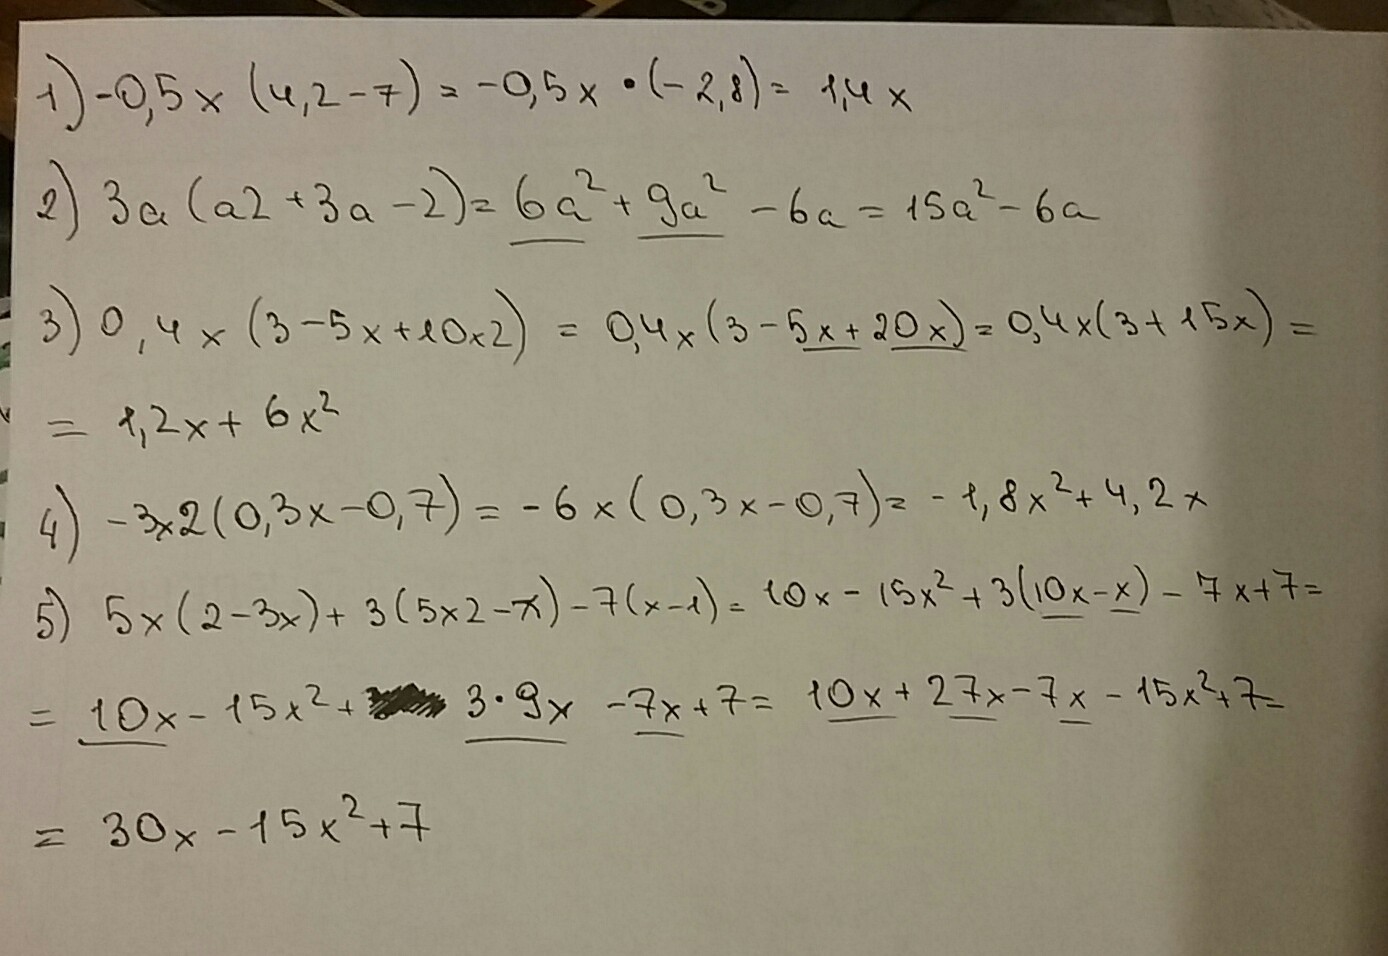 1) -0,5x (4,2-7) = -0,5x • (-2,8) = 1,4x
2) 3a (a2 + 3a - 2) = 6a² + 9a² - 6a = 15a² - 6a
3) 0,4x (3-5x+10x2) = 0,4x(3-5x+20x) = 0,4x(3+15x) =
= 1,2x + 6x²
4) -3x2(0,3x-0,7) = -6x(0,3x-0,7) = -1,8x²+4,2x
5) 5x(2-3x)+3(5x2-x)-7(x-1) = 10x-15x²+3(10x-x)-7x+7=
= 10x-15x²+ 3•9x -7x+7= 10x+27x-7x-15x²+7=
= 30x-15x²+7